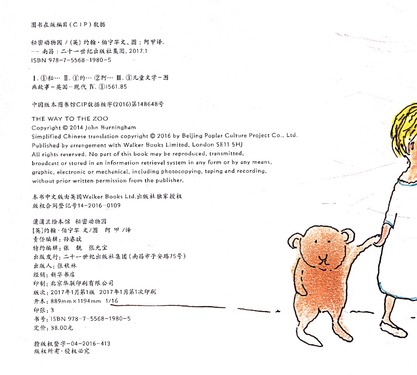 图书在版编目(CIP)数据
秘密动物园/(英)约翰·伯宁罕文、图;阿甲译.
-- 南昌:二十一世纪出版社集团,2017.1
ISBN 978-7-5568-1980-5
Ⅰ.①秘… Ⅱ.①约…②阿… Ⅲ.①儿童文学-图
画故事-英国-现代 Ⅳ.①I561.85
中国版本图书馆CIP数据核字(2016)第148648号
THE WAY TO THE ZOO
Copyright © 2014 John Burningham
Simplified Chinese translation copyright © 2016 by Beijing Poplar Culture Project Co., Ltd.
Published by arrangement with Walker Books Limited, London SE11 5HJ
All rights reserved. No part of this book may be reproduced, transmitted,
broadcast or stored in an information retrieval system in any form or by any means,
graphic, electronic or mechanical, including photocopying, taping and recording,
without prior written permission from the publisher.
本书中文版由英国Walker Books Ltd.出版社独家授权
版权合同登记号14-2016-0109
蒲蒲兰绘本馆 秘密动物园
(英)约翰·伯宁罕 文/图 阿甲/译
责任编辑:
特约编辑:
出版发行:二十一世纪出版社集团(南昌市子安路75号)
出版人:张秋林
经销:新华书店
印制:北京华联印刷有限公司
版次:2017年1月第1版 2017年1月第1次印刷
开本:889mm×1194mm 1/16
印张:3
书号:ISBN 978-7-5568-1980-5
定价:38.00元
赣版权登字-04-2016-413
版权所有·侵权必究